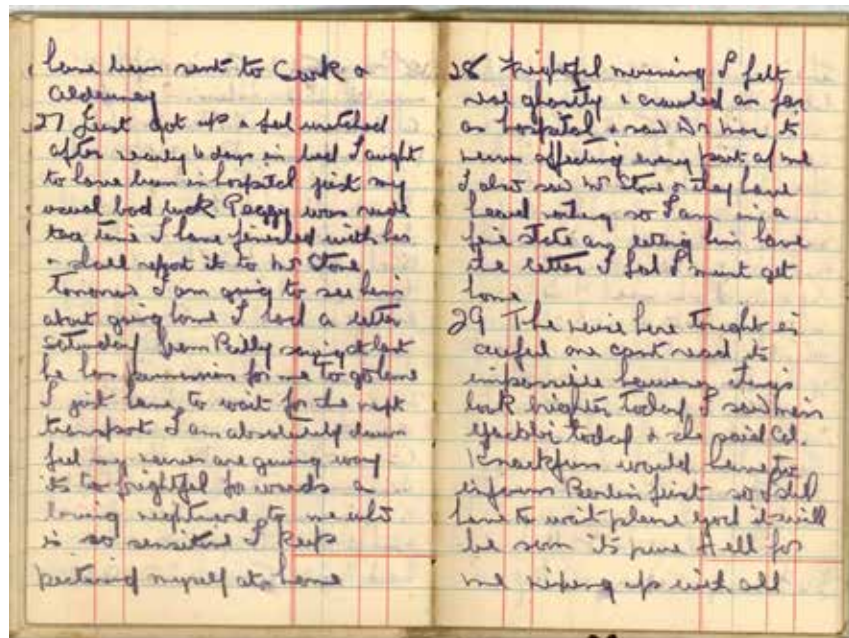 have been sent to Cook a
Alderney
27 Just got up & feel wretched
after nearly 6 days in bed I ought
to have been in hospital just my
usual bad luck Peggy was rude
this time I have finished with her
& shall report it to Mr Stone
tomorrow I am going to see him
about going home I had a letter
Saturday from Billy saying at last
he has permission for me to go home
I just have to wait for the next
transport I am absolutely down
feel my nerves are giving way
its too frightful for words a
living nightmare to me who
is so sensitive I keep
picturing myself at home
28 Frightful morning I felt
real ghastly & crawled as far
as hospital & saw Dr its
nerves affecting every part of me
I also saw Mr Stone & they have
heard nothing so I am in a
fine state am letting him have
the letter I feel I must get
home
29 The noise here tonight is
awful one cant read its
impossible however things
look brighter today I saw
today & she said Col.
would have to
inform Berlin first so still
have to wait please god it will
be soon its pure Hell for
me with all